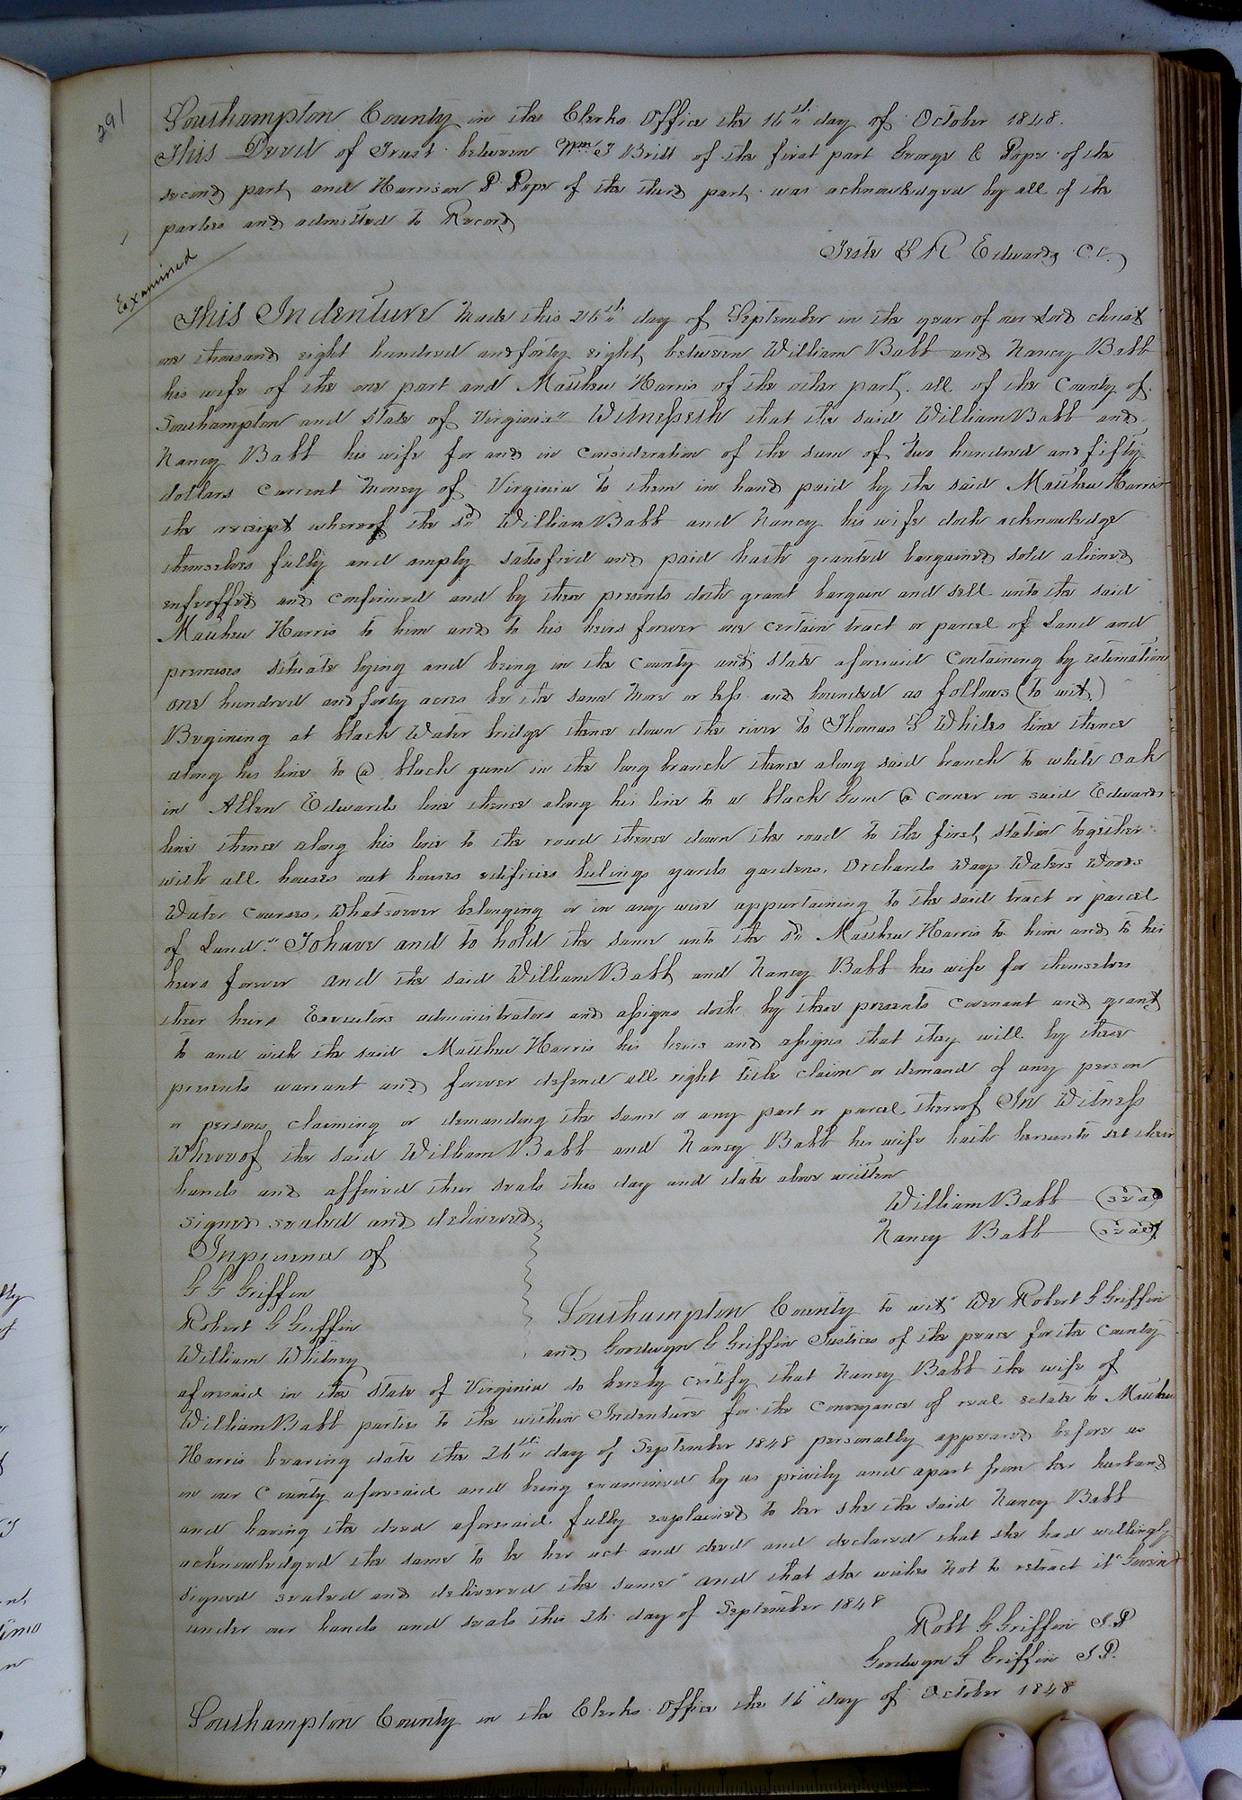 291
Southampton County in the Clerks Office the 16th day of October 1848.
This Deed of Trust between Wm J Britt of the first part George E Pope of the
second part and Harrison P Pope of the third part was acknowledged by all of the
parties and admitted to Record
Teste L R Edwards C.C.
Examined
This Indenture Made this 26th day of September in the year of our Lord christ
one thousand eight hundred and forty eight, between William Babb and Nancy Babb
his wife of the one part and Matthew Harris of the other part, all of the County of
Southampton and State of Virginia" Witnesseth that the said William Babb and
Nancy Babb his wife for and in consideration of the sum of two hundred and fifty
dollars Current Money of Virginia to them in hand paid by the said Matthew Harris
the receipt whereof the sd William Babb and Nancy his wife doth acknowledge
themselves fully and amply satisfied and paid hath granted bargained sold aliened
enfeoffed and confirmed and by these presents doth grant bargain and sell unto the said
Matthew Harris to him and to his heirs forever one certain tract or parcel of Land and
premises situate lying and being in the County and State aforesaid Containing by estimation
one hundred and forty acres be the same More or less and bounded as follows (to wit)
Begining at black Water bridge thence down the river to Thomas S Whites line thence
along his line to a black gum in the long branch thence along said branch to white oak
in Allen Edwards line thence along his line to a black Gum a corner in said Edwards
line thence along his line to the road thence down the road to the first station together
with all houses out houses edificies yards gardens, Orchards Ways Waters Woods
Water Courses, Whatsoever belonging or in any wise appertaining to the said tract or parcel
of Land." To have and to hold the same unto the sd Matthew Harris to him and to his
heirs forever and the said William Babb and Nancy Babb his wife for themselves
their heirs Executors administrators and assigns doth by these presents covenant and grant
to and with the said Matthew Harris his heirs and assigns that they will by these
presents warrant and forever defend all right title claim or demand of any person
or persons claiming or demanding the same or any part or parcel thereof In Witness
Whereof the said William Babb and Nancy Babb his wife hath hereunto set their
hands and affixed their seals this day and date above written
William Babb (seal)
signed sealed and delivered
Nancy Babb (seal)
In presence of
G G Griffin
Robert G Griffin
William Whitney
Southampton County to wit" We Robert G Griffin
and Gordwyn G Griffin Justices of the peace for the County
aforesaid in the State of Virginia do hereby certify that Nancy Babb the wife of
William Babb parties to the within Indenture for the Conveyance of real estate to Matthew
Harris bearing date the 26th day of September 1848 personally appeared before us
in our County aforesaid and being examined by us privily and apart from her husband
and having the deed aforesaid fully explained to her she the said Nancy Babb
acknowledged the same to be her act and deed and declared that she had willingly
signed sealed and delivered the same" and that she wishes not to retract it" Given
under our hands and seals this 26 day of September 1848
Robt G Griffin J.P
Gordwyn G Griffin J.P.
Southampton County in the Clerks Office the 16" day of October 1848